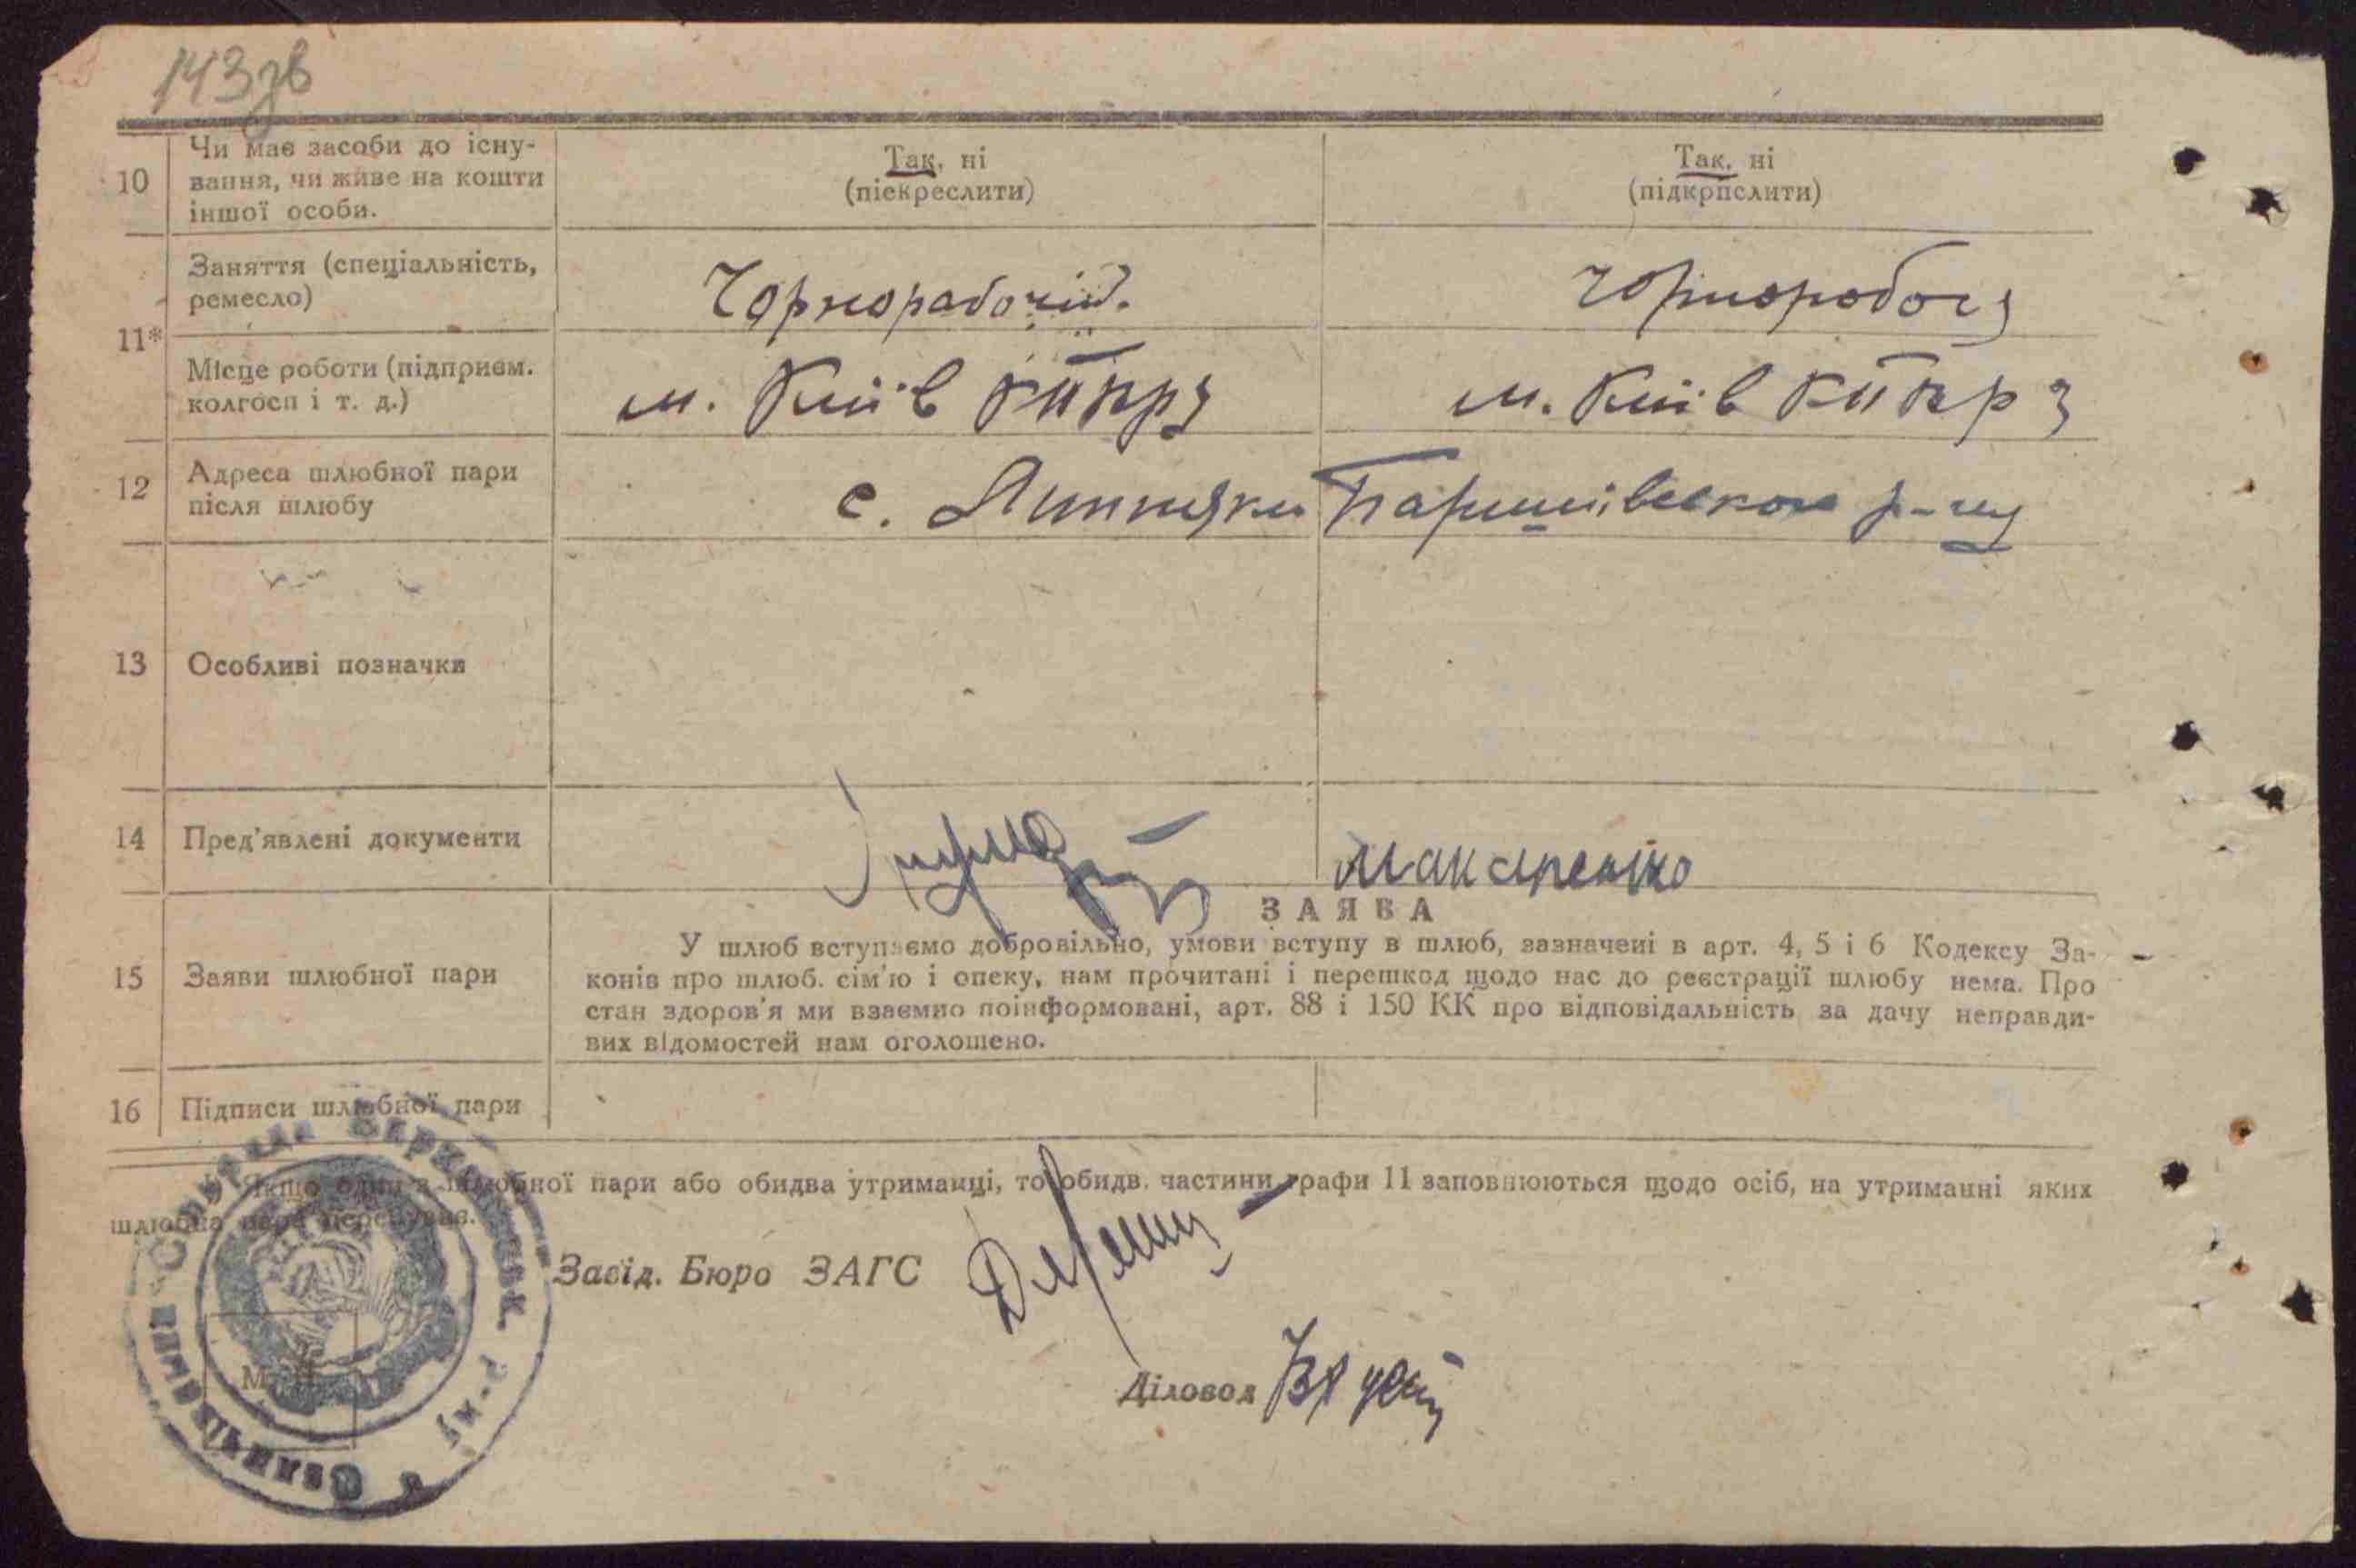 143зв
10
Чи має засоби до існу-
вання, чи живе на кошти
іншої особи.
Так, ні
(піекреслити)
Так, ні
(підкрпслити)
11*
Заняття (спеціальність,
ремесло)
Чорнорабочій.
Чорноробоча
Місце роботи (підприєм.
колгосп і т. д.)
м. Київ
м. Київ
12
Адреса шлюбної пари
після шлюбу
с. Липняки Баришівського р-ну
13
Особливі позначки
14
Пред'явлені документи
Макаренко
15
Заяви шлюбної пари
ЗАЯВА
У шлюб вступаємо добровільно, умови вступу в шлюб, зазначені в арт. 4, 5 і 6 Кодексу За-
конів про шлюб. сім'ю і опеку, нам прочитані і перешкод щодо нас до реєстрації шлюбу нема. Про
стан здоров'я ми взаємно поінформовані, арт. 88 і 150 КК про відповідальність за дачу неправди-
вих відомостей нам оголошено.
16
Підписи шлюбної пари
Якщо один з шлюбної пари або обидва утриманці, то обидв. частини графи 11 заповнюються щодо осіб, на утриманні яких
шлюбна пара перебуває.
Завід. Бюро ЗАГС
Діловод
М. П.
р-ну